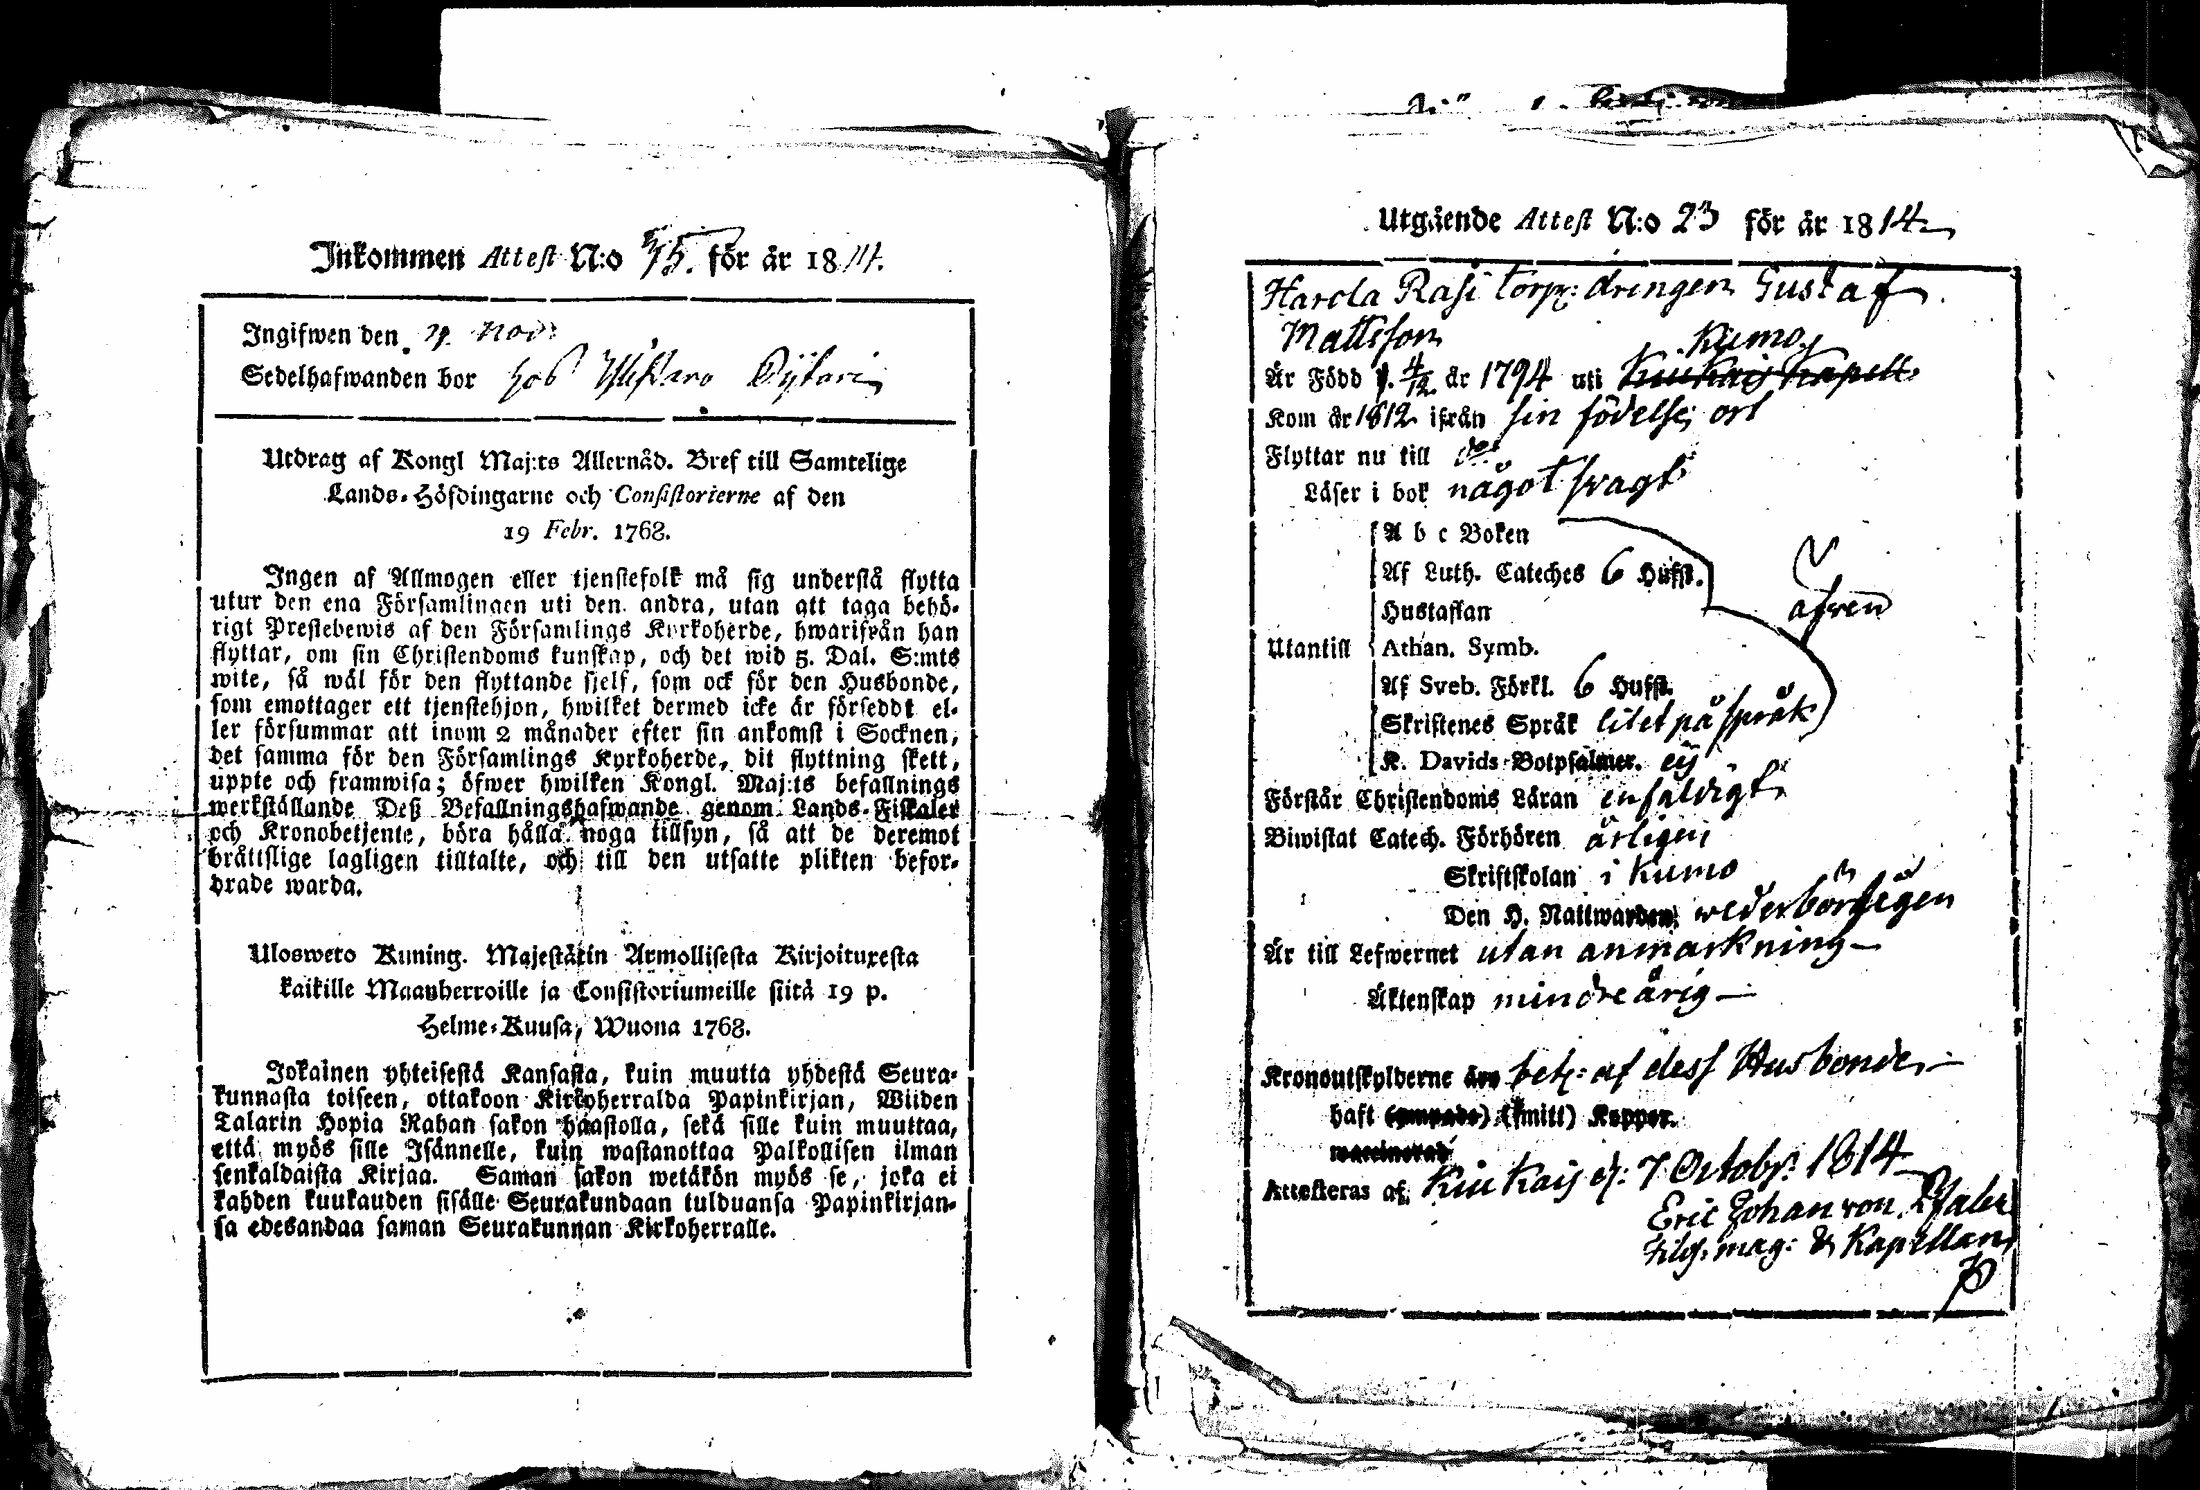 Inkommen Attest N:o 75. för år 1814.
Ingifwen den 29. Nov:
Sedelhafwanden bor hos Ylistaro Pytari
Utdrag af Kongl Maj:ts Allernåd. Bref till Samtelige
Lands-Höfdingarne och Consistorierne af den
19 Febr. 1768.
Ingen af Allmogen eller tjenstefolk må sig understå flytta
utur den ena Församlingen uti den andra, utan att taga behö-
rigt Prestebewis af den Församlings Kyrkoherde, hwarifrån han
flyttar, om sin Christendoms kunskap, och det wid 5. Dal. S:mts
wite, så wäl för den flyttande sjelf, som ock för den Husbonde,
som emottager ett tjenstehjon, hwilket dermed icke är förseddt el-
ler försummar att inom 2 månader efter sin ankomst i Socknen,
det samma för den Församlings Kyrkoherde, dit flyttning skett,
uppte och framwisa; öfwer hwilken Kongl. Maj:ts befallnings
werkställande Deß Befallningshafwande genom Lands-Fiskaler
och Kronobetjente, böra hålla noga tillsyn, så att de deremot
bråttslige lagligen tilltalte, och till den utsatte plikten befor-
drade warda.
Ulosweto Kuning. Majestätin Armollisesta Kirjoituxesta
kaikille Maanherroille ja Consistoriumeille siitä 19 p.
Helme-Kuusa, Wuona 1768.
Jokainen yhteisestä Kansasta, kuin muutta yhdestä Seura-
kunnasta toiseen, ottakoon Kirkoherralda Papinkirjan, Wiiden
Talarin Hopia Rahan sakon haastolla, sekä sille kuin muuttaa,
että myös sille Isännelle, kuin wastanottaa Palkollisen ilman
senkaldaista Kirjaa. Saman sakon wetäkön myös se, joka ei
kahden kuukauden sisälle Seurakundaan tulduansa Papinkirjan-
sa edesandaa saman Seurakunnan Kirkoherralle.
Utgående Attest N:o 23 för år 1814
Harola Rasi torp: drengen Gustaf
Mattsson
Kumo
Är Född d. 4/12 år 1794 uti Kiukais Kapell
Kom år 1812 ifrån sin födelse ort
Flyttar nu till do
Läser i bok något swagt
A b c Boken
Af Luth. Cateches 6 Hufst.
Hustaflan
äfwen
Utantill Athan. Symb.
Af Sveb. Förkl. 6 Hufst.
Skriftenes Språk litet på språk
K. Davids Botpsalmer. eij
Förstår Christendoms Läran enfaldigt
Biwistat Catech. Förhören årligen
Skriftskolan i Kumo
Den H. Nattwarden wederbörligen
Är till Lefwernet utan anmärkning
Äktenskap mindreårig
Kronoutskylderne äro bet: af dess Husbonde
haft (ympade) (smitt) Koppor.
waccinerad
Attesteras af. Kiukais d: 7 Octobr: 1814
Eric Johan von Pfaler
Filos: mag: & Kapellan